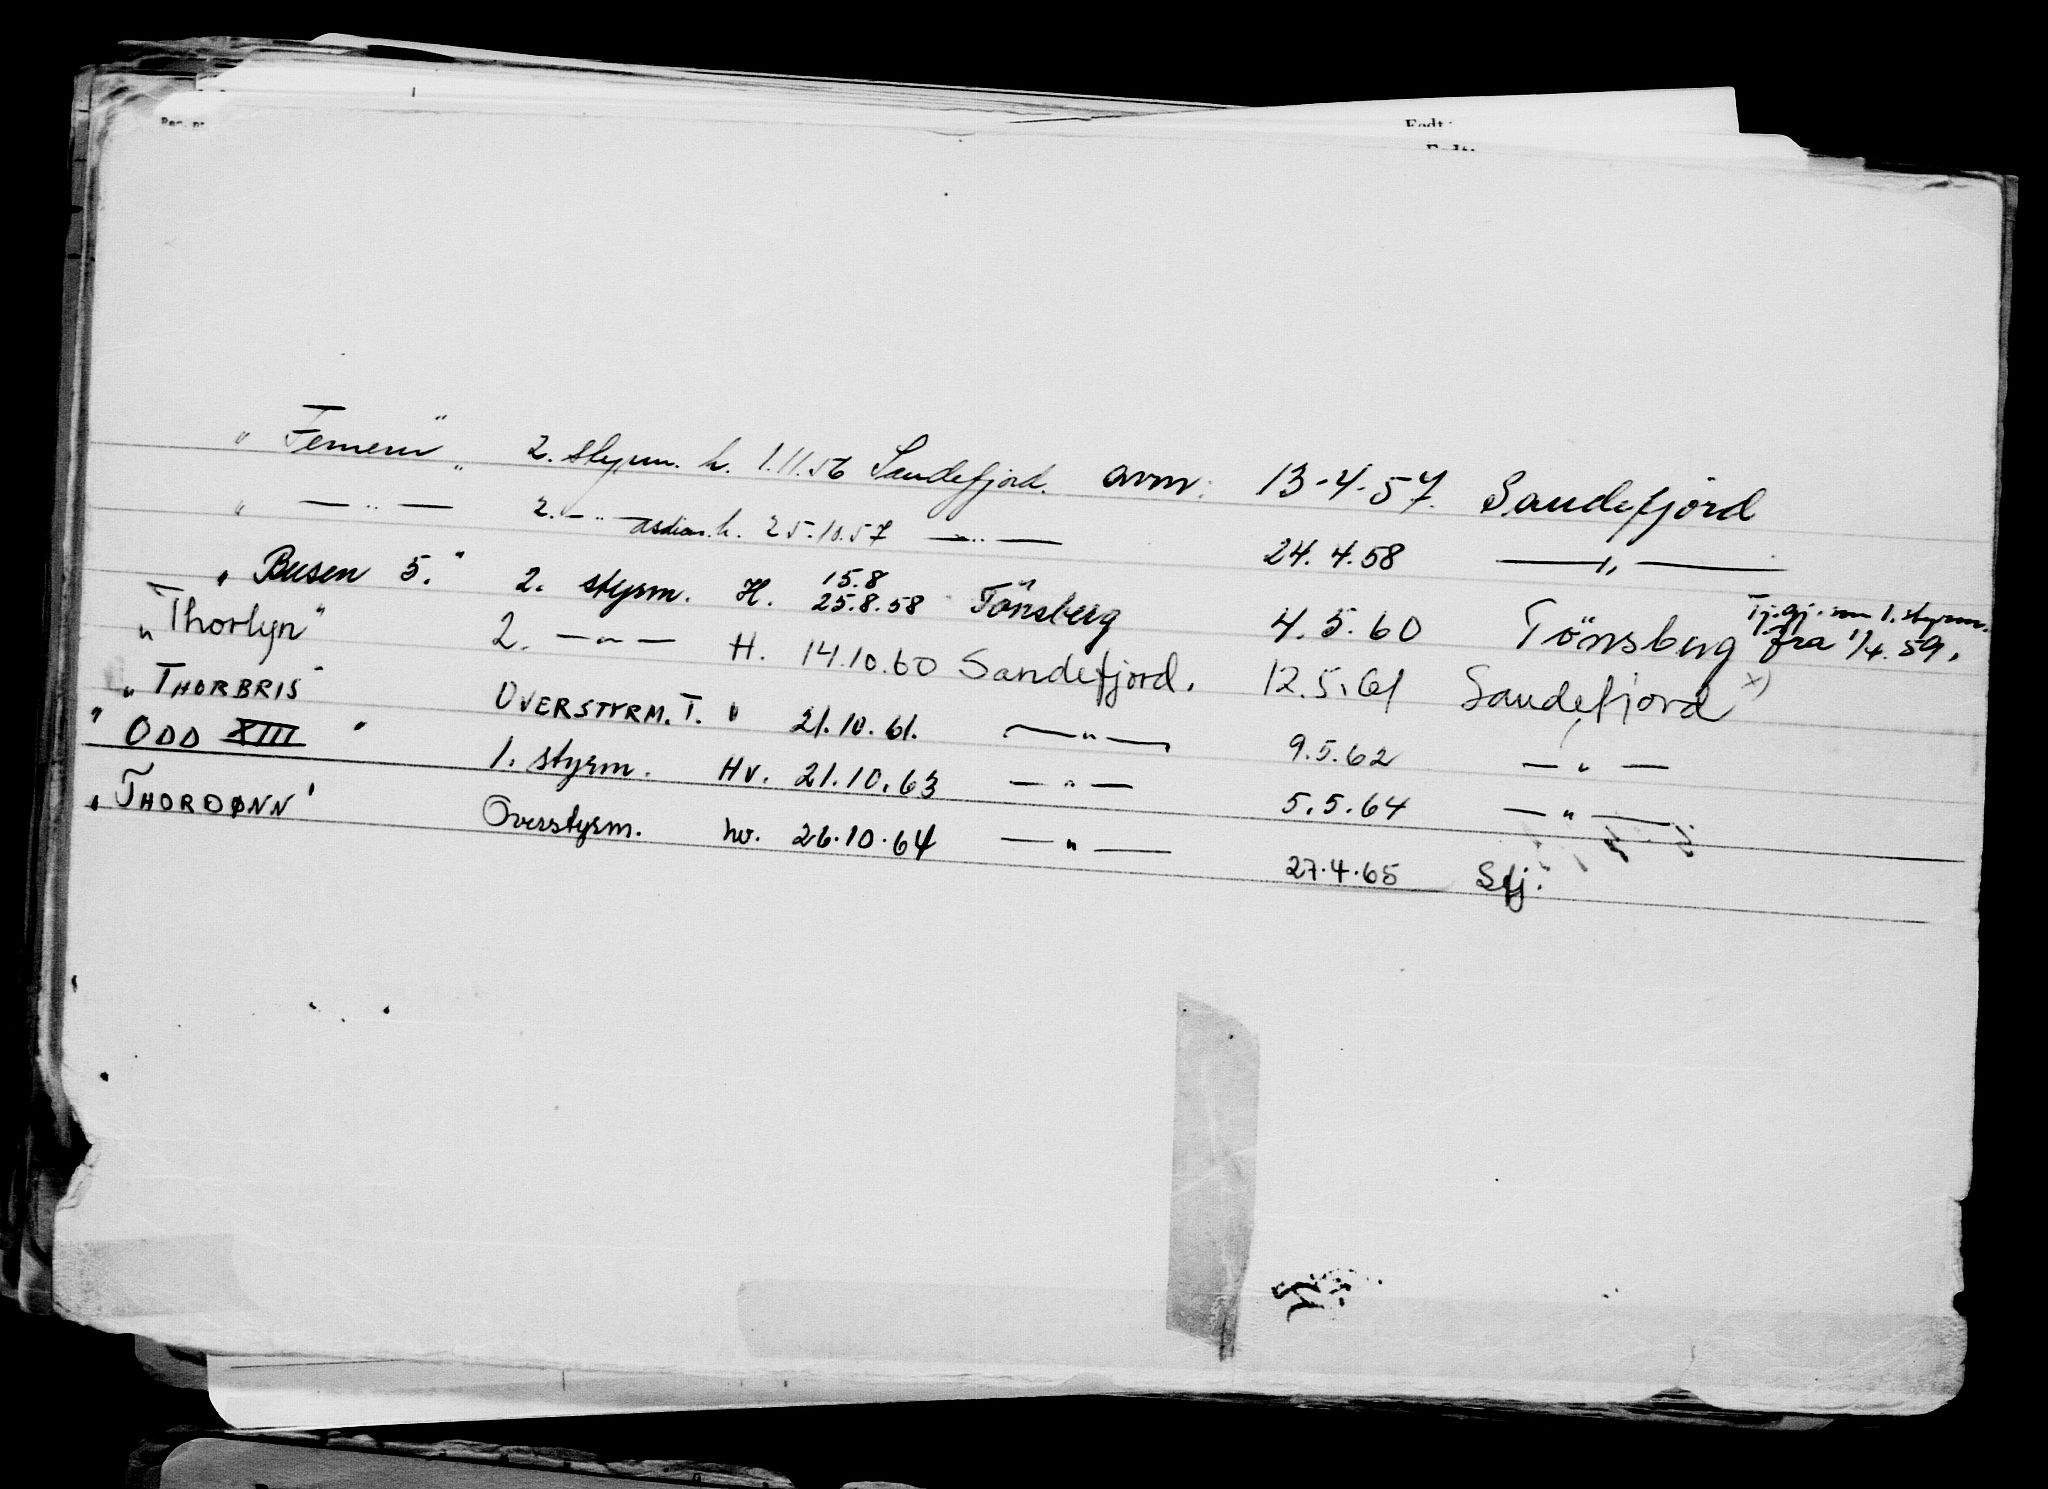 "Fernern" 2. styrm. h. 1.11.56 Sandefjord. avm. 13-4-57. Sandefjord
" — " — 2. — " — h. 25.10.57 — " — 24.4.58 — " —
"Busen 5." 2. styrm. H. 15.8 25.8.58 Tönsberg 4.5.60 Tönsberg Tj.gj. som 1. styrm. fra 1/4.59.
"Thorlyn" 2. — " — H. 14.10.60 Sandefjord. 12.5.61 Sandefjord x)
"THORBRIS" OVERSTYRM. T. " 21.10.61. — " — 9.5.62 — " —
"ODD XIII" 1. styrm. Hv. 21.10.63 — " — 5.5.64 — " —
"THORDØNN" Overstyrm. hv. 26.10.64 — " — 27.4.65 Sfj.